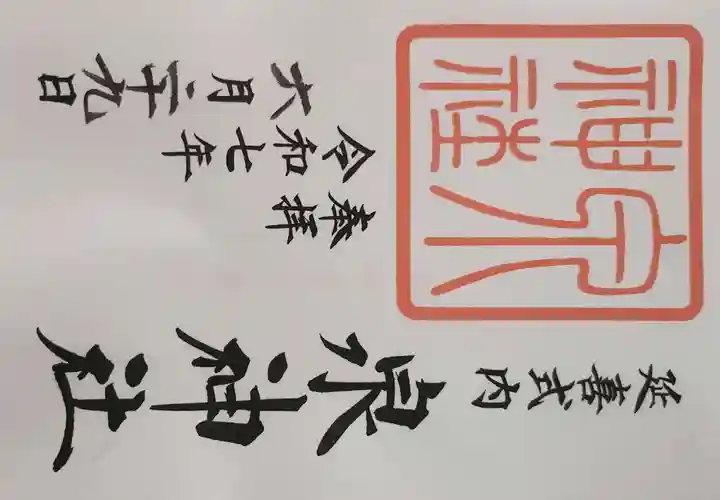 延喜式内 泉神社
奉拝
令和七年
六月二十九日
泉
神社